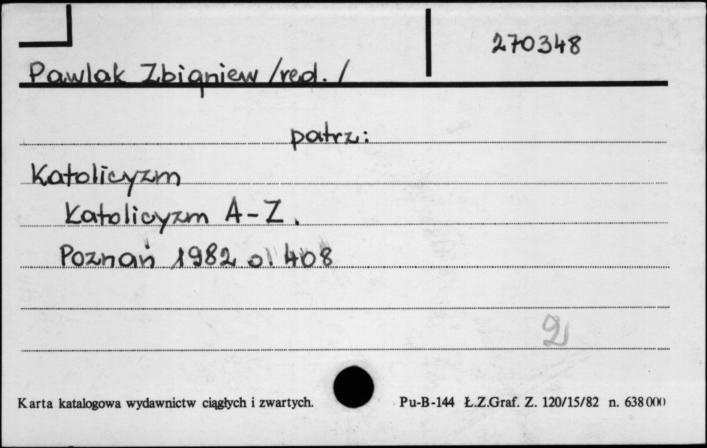 270348
Pawlak Zbigniew /red./
patrz:
Katolicyzm
Katolicyzm A-Z.
Poznań 1982 ol. 408
2
Karta katalogowa wydawnictw ciągłych i zwartych. Pu-B-144 Ł.Z.Graf. Z. 120/15/82 n. 638000